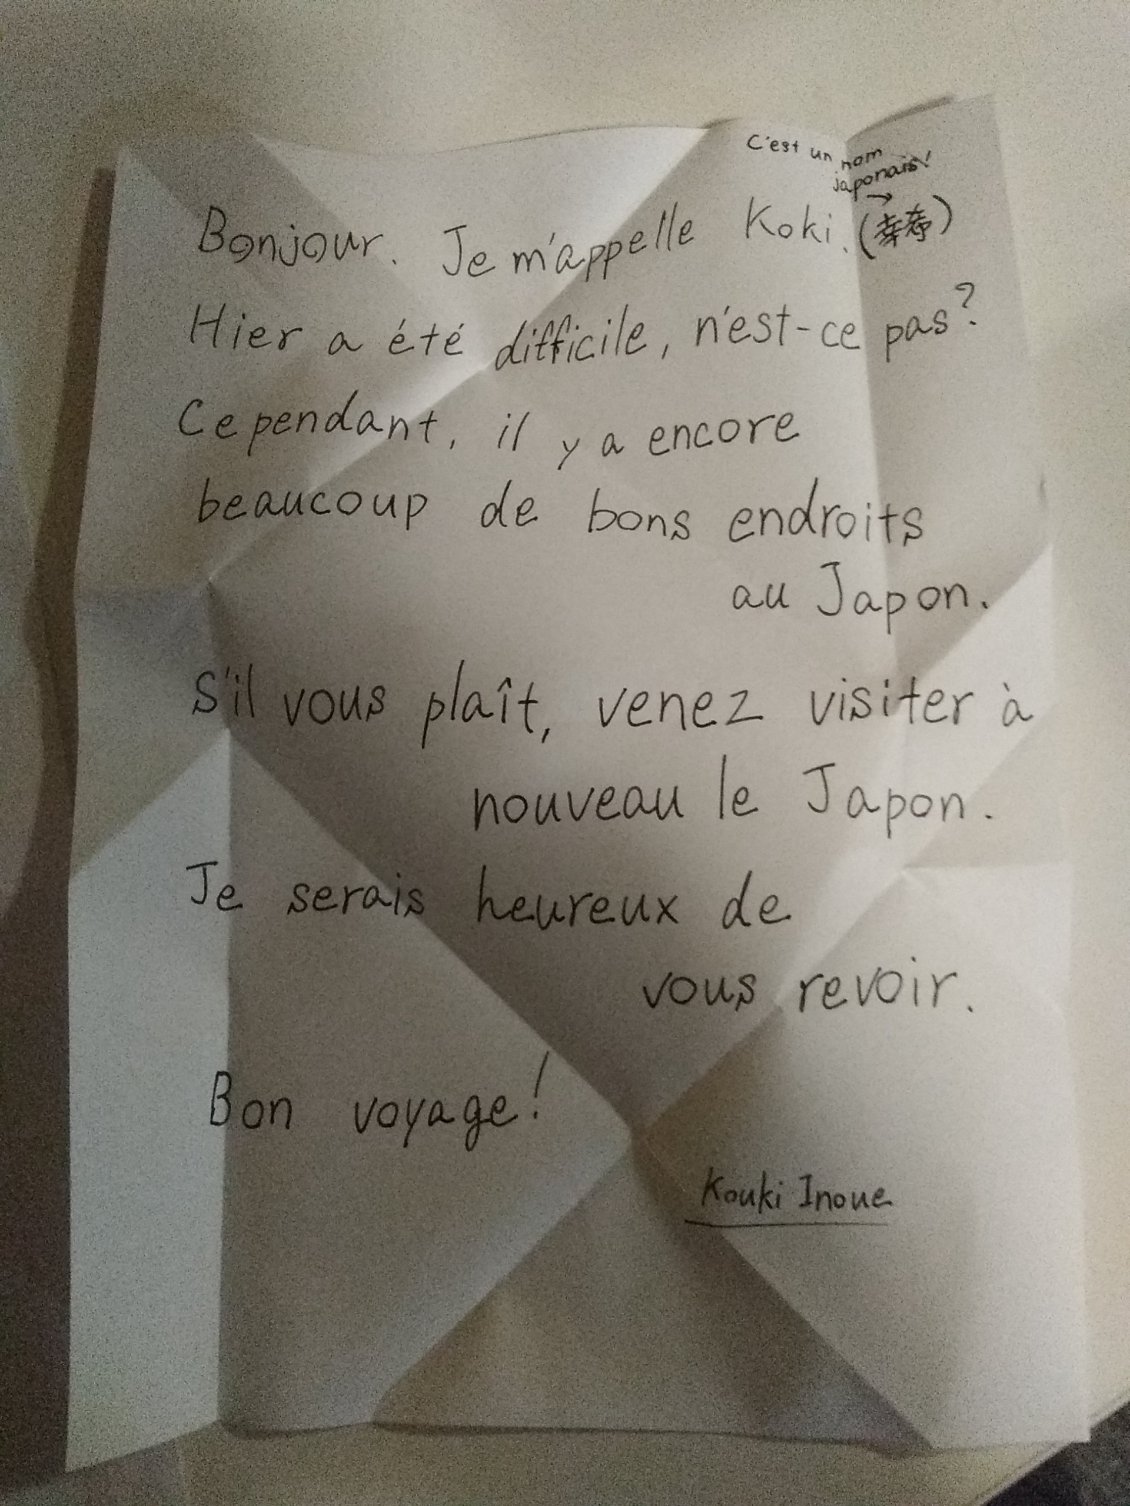 C'est un nom
japonais!
→
Bonjour. Je m'appelle Koki. (幸寿)
Hier a été difficile, n'est-ce pas?
Cependant, il y a encore
beaucoup de bons endroits
au Japon.
S'il vous plaît, venez visiter à
nouveau le Japon.
Je serais heureux de
vous revoir.
Bon voyage!
Kouki Inoue